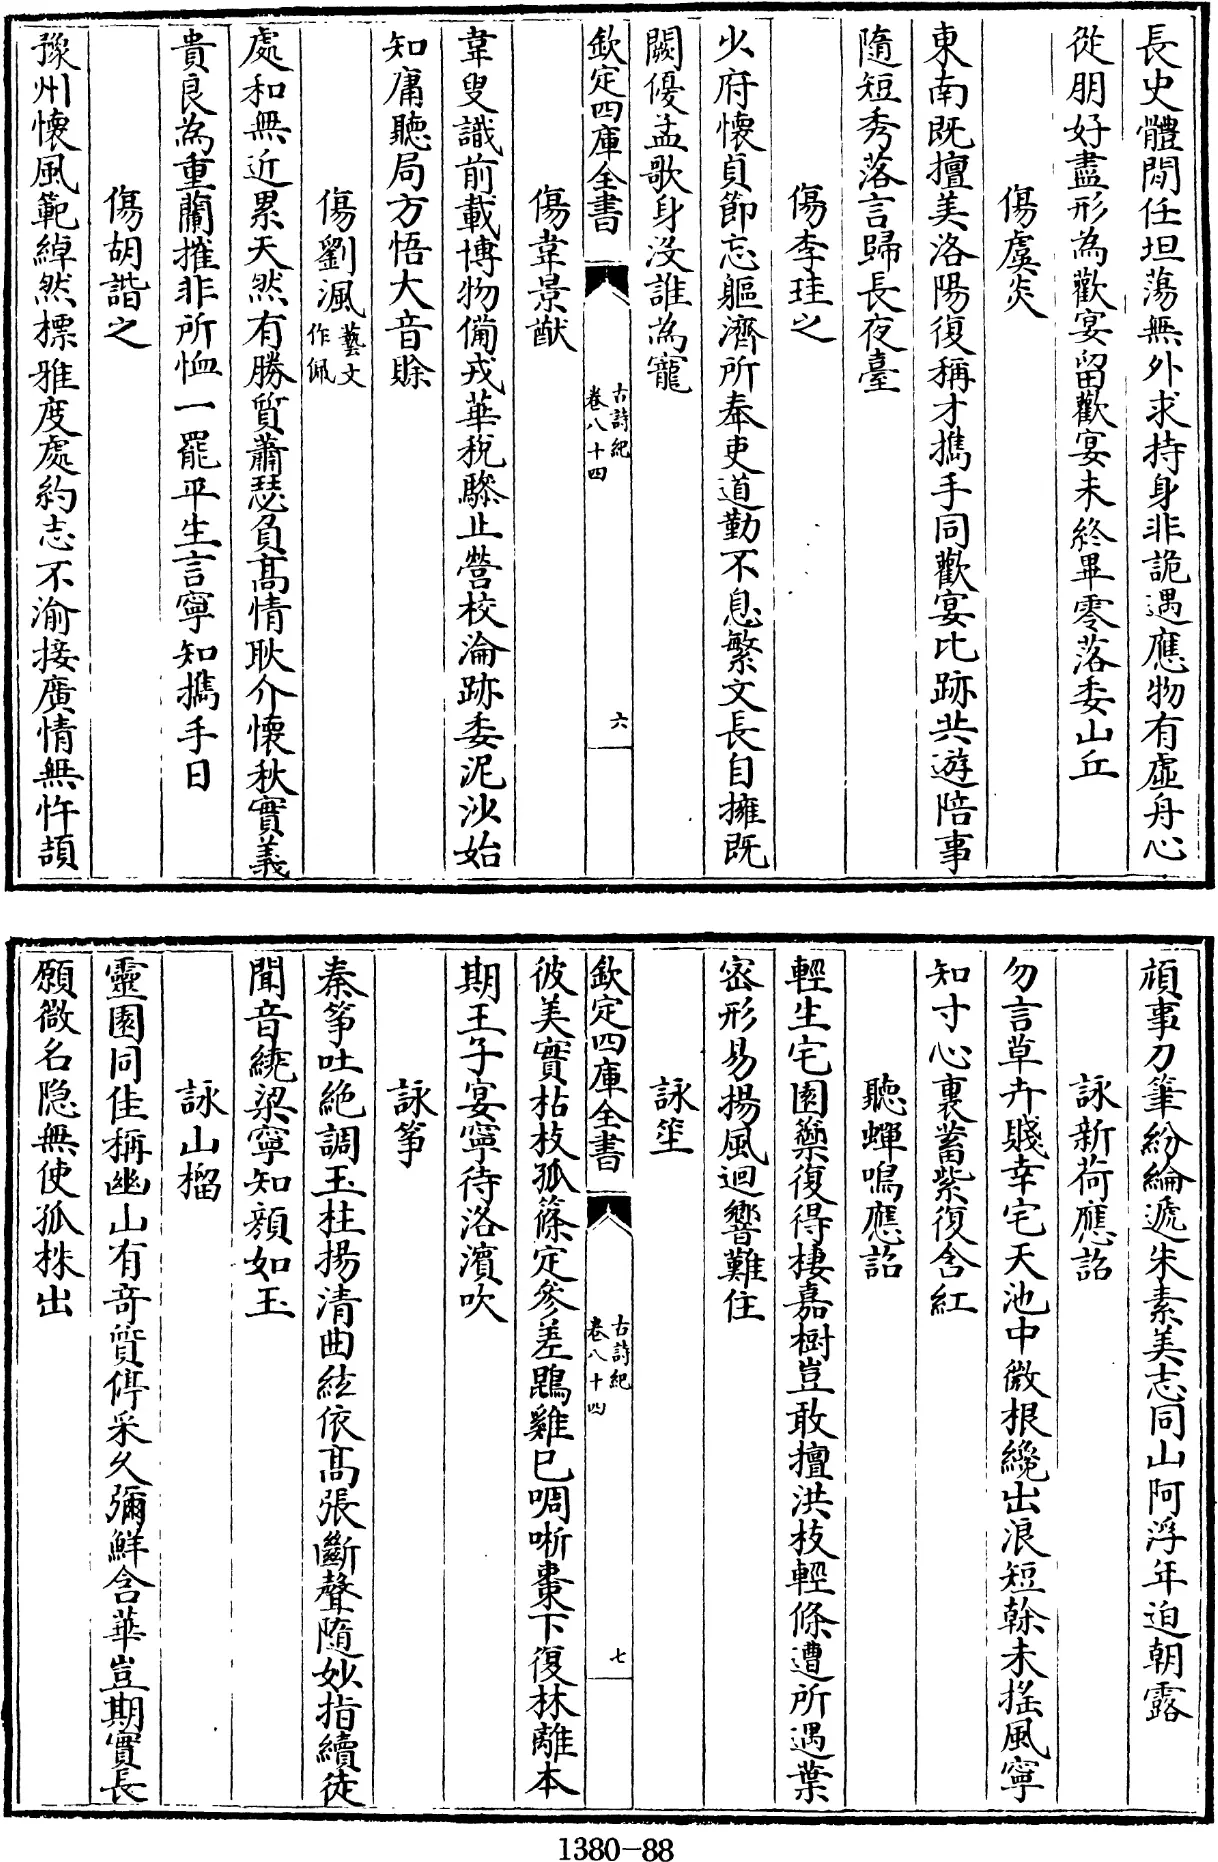 長史體閒任坦蕩無外求持身非詭遇應物有虛舟心
從朋好盡形為歡宴留歡宴未終畢零落委山丘
傷虞炎
東南既擅美洛陽復稱才攜手同歡宴比跡共遊陪事
隨短秀落言歸長夜臺
傷李珪之
少府懷貞節忘軀濟所奉吏道勤不息繁文長自擁既
闕優孟歌身沒誰為寵
欽定四庫全書
古詩紀
卷八十四
六
傷韋景猷
韋叟識前載博物備戎華稅驂止營校淪跡委泥沙始
知庸聽局方悟大音賒
傷劉渢藝文作佩
處和無近累天然有勝質蕭瑟負高情耿介懷秋實義
貴良為重蘭摧非所恤一罷平生言寧知攜手日
傷胡諧之
豫州懷風範綽然標雅度處約志不渝接廣情無忤頡
頏事刀筆紛綸遞朱素美志同山阿浮年迫朝露
詠新荷應詔
勿言草卉賤幸宅天池中微根纔出浪短榦未搖風寧
知寸心裏蓄紫復含紅
聽蟬鳴應詔
輕生宅園籞復得棲嘉樹豈敢擅洪枝輕條遭所遇葉
密形易揚風迴響難住
詠笙
欽定四庫全書
古詩紀
卷八十四
七
彼美實枯枝孤篠定參差鵾雞已啁哳棗下復林離本
期王子宴寧待洛濱吹
詠箏
秦箏吐絶調玉柱揚清曲絃依高張斷聲隨妙指續徒
聞音繞梁寧知顔如玉
詠山榴
靈園同佳稱幽山有竒質停采久彌鮮含華豈期實長
願微名隐無使孤株出
1380-88